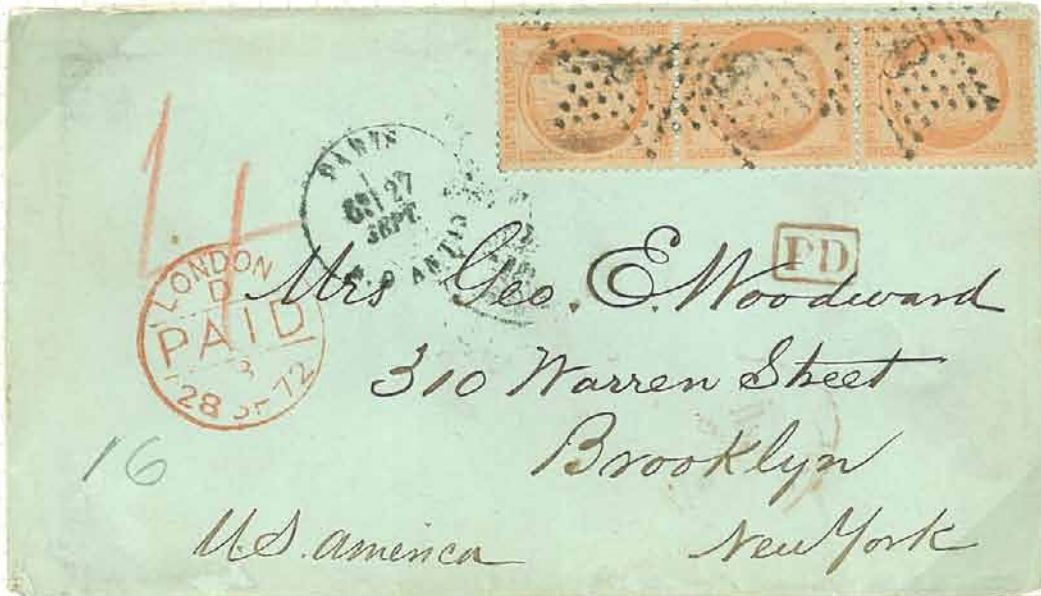 PARIS
27
SEPT.
PD
4
LONDON
D
PAID
28 72
Mrs Geo. E. Woodward
310 Warren Street
Brooklyn
New York
U.S. America
16